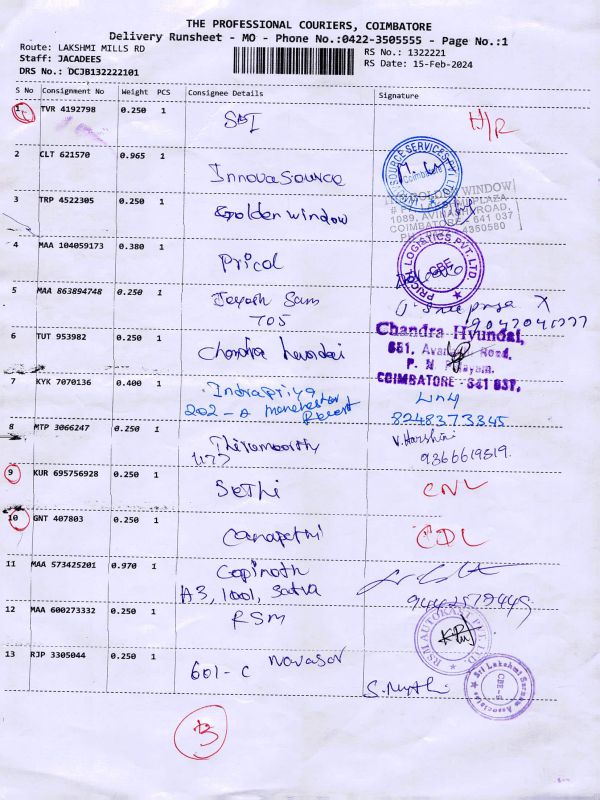 THE PROFESSIONAL COURIERS, COIMBATORE
Delivery Runsheet - MO - Phone No.:0422-3505555 - Page No.:1
Route: LAKSHMI MILLS RD
RS No.: 1322221
Staff: JACADEES
RS Date: 15-Feb-2024
DRS No.: DCJB132222101
S No Consignment No Weight PCS Consignee Details Signature
1 TVR 4192798 0.250 1 SBI H/R
2 CLT 621570 0.965 1 Innovasource
3 TRP 4522305 0.250 1 Golden window
WINDOW
1089, AVINASHI ROAD,
COIMBATORE - 641 037
4360580
4 MAA 104059173 0.380 1 Pricol
PRICOL LOGISTICS PVT. LTD
CBE
5 MAA 863894748 0.250 1 Jeyash Sam
705
6 TUT 953982 0.250 1 Chandra
Chandra Hyundai,
COIMBATORE - 641 037.
7 KYK 7070136 0.400 1 Indrapriya
202-A Manchester
8248373345
8 MTP 3066247 0.250 1 Thiremoorthy
V. Harshini
9366619819.
9 KUR 695756928 0.250 1 Sethi CNL
10 GNT 407803 0.250 1 Ganapathi CDL
11 MAA 573425201 0.970 1 Gopinath
A3, 1001, Satva
9442579449
12 MAA 600273332 0.250 1 RSM
RSM AUTOKAST PVT. LTD.
13 RJP 3305044 0.250 1 601-C
Sri Lakshmi Associates
13